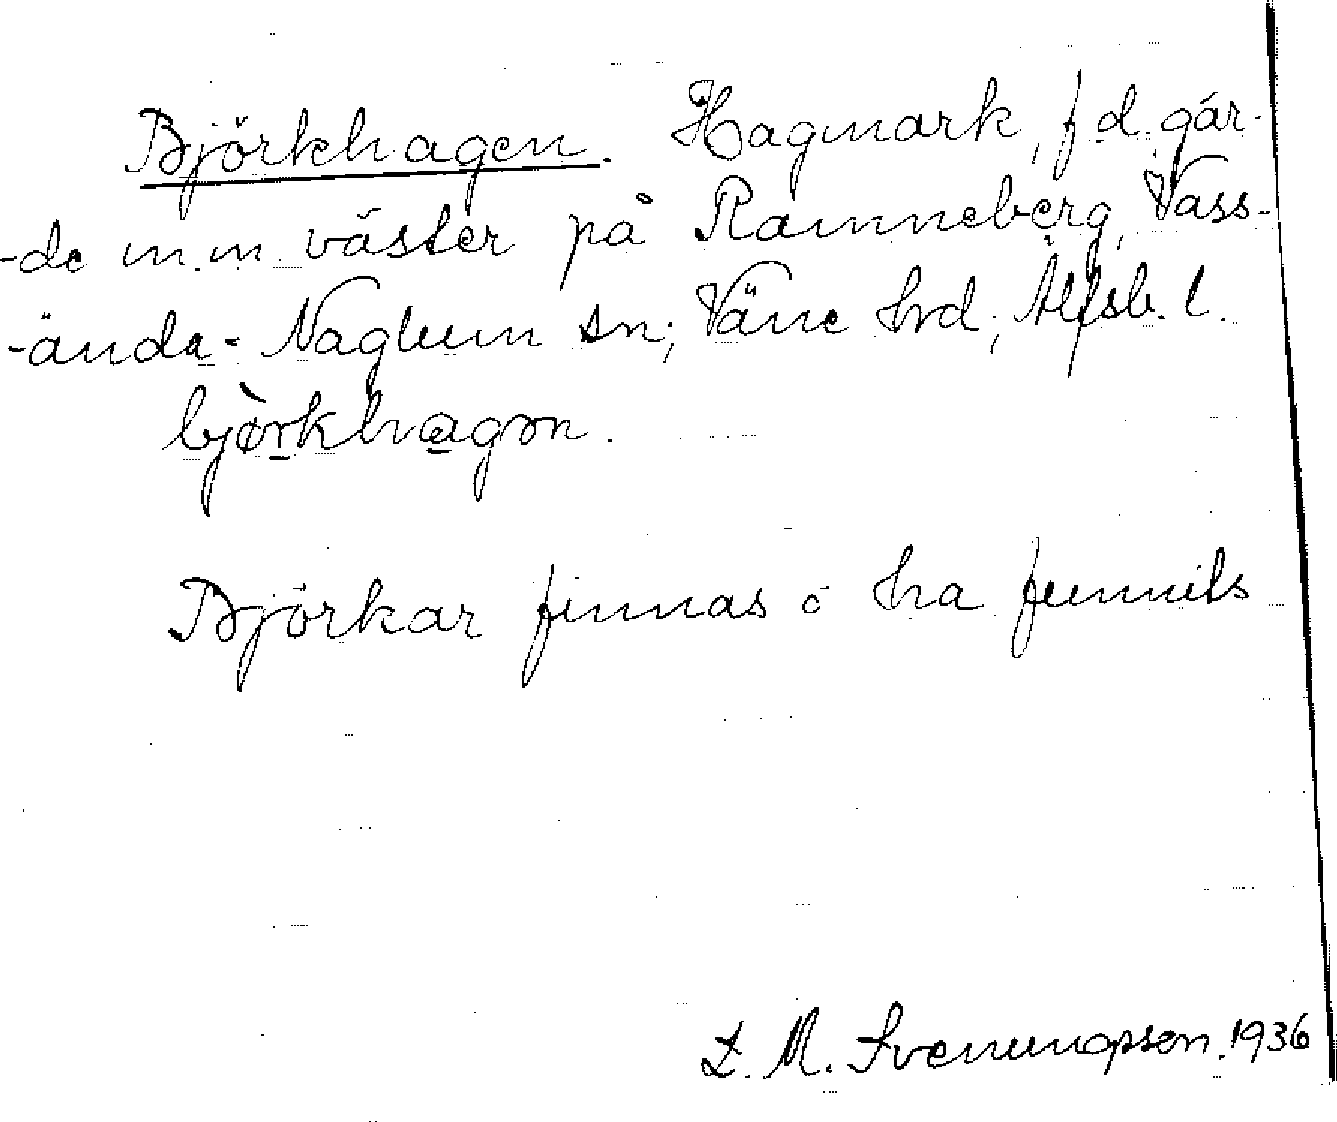 Björkhagen. Hagmark, f d. gär-
-de m.m. väster på Ramneberg, Vass-
-ända-Naglum sn; Väne hrd; Älfsb. l.
bjòrkhagɔn.
Björkar finnas o ha funnits
L. M. Svenungsson. 1936